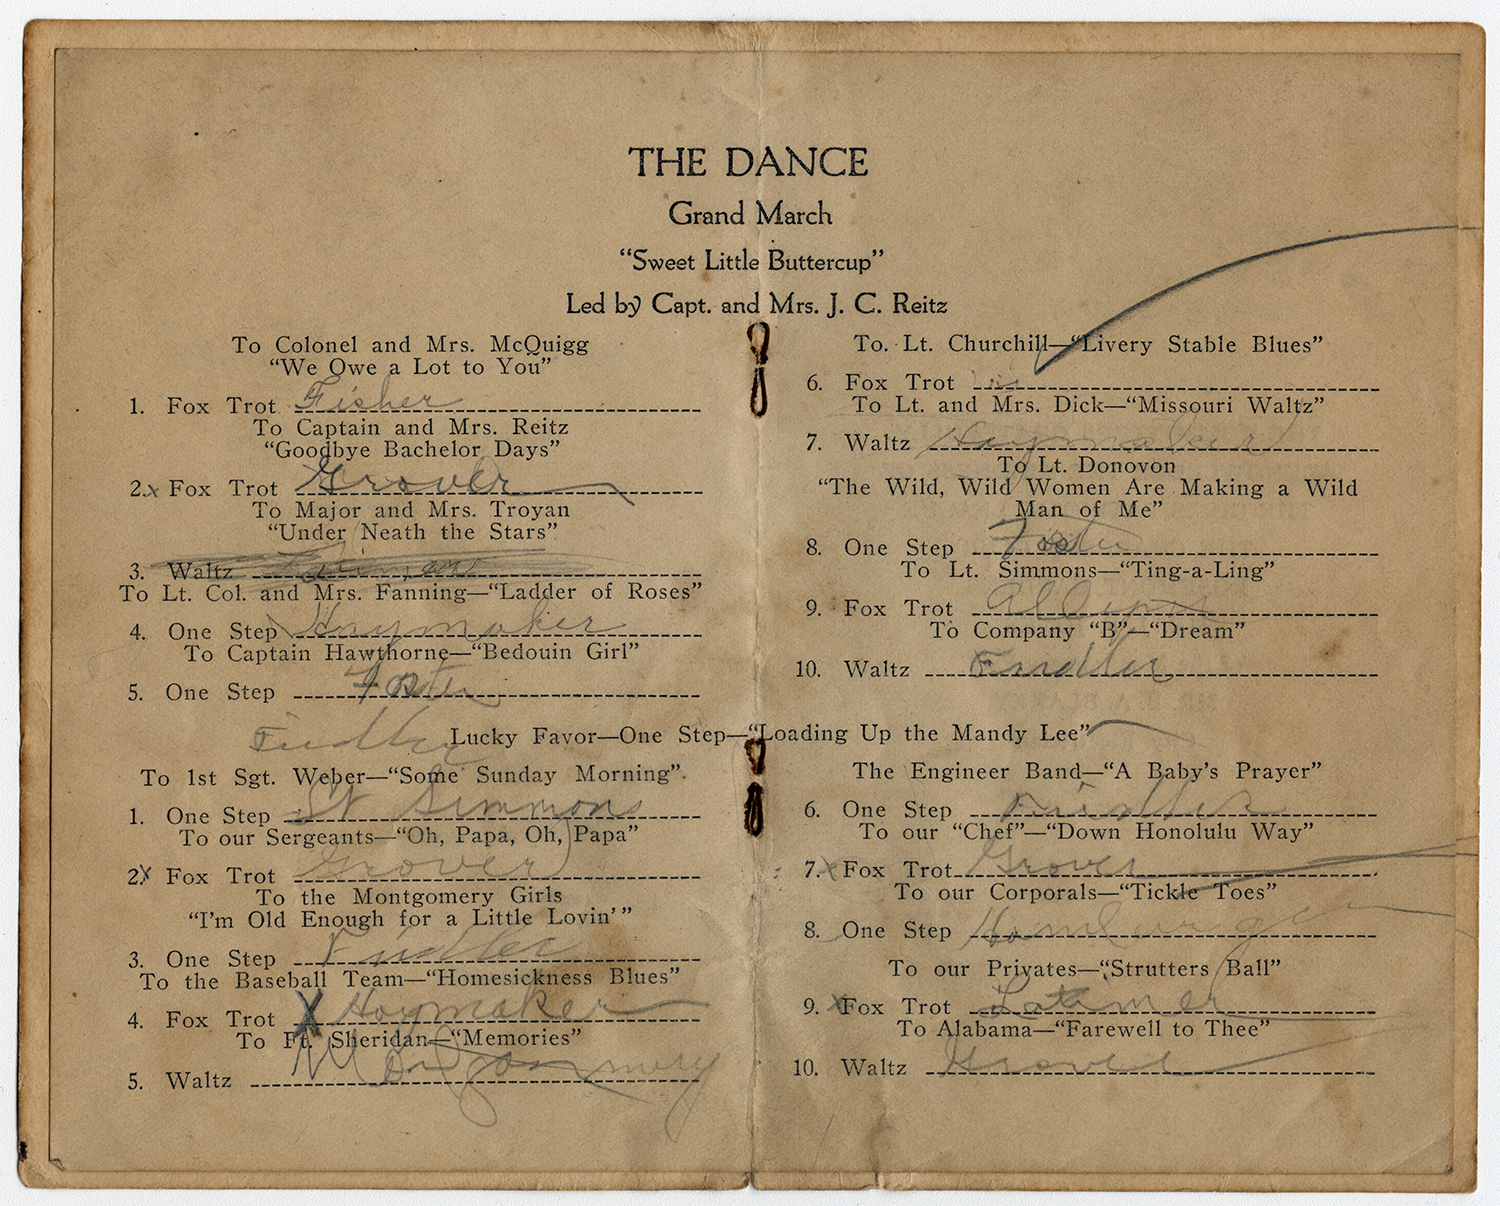 THE DANCE
Grand March
“Sweet Little Buttercup”
Led by Capt. and Mrs. J. C. Reitz
To Colonel and Mrs. McQuigg
“We Owe a Lot to You”
1. Fox Trot Fisher
To Captain and Mrs. Reitz
“Goodbye Bachelor Days”
2.x Fox Trot Grover
To Major and Mrs. Troyan
“Under Neath the Stars”
3. Waltz
To Lt. Col. and Mrs. Fanning—“Ladder of Roses”
4. One Step Haymaker
To Captain Hawthorne—“Bedouin Girl”
5. One Step Foster
To. Lt. Churchill—“Livery Stable Blues”
6. Fox Trot
To Lt. and Mrs. Dick—“Missouri Waltz”
7. Waltz Haymaker
To Lt. Donovon
“The Wild, Wild Women Are Making a Wild
Man of Me”
8. One Step Foster
To Lt. Simmons—“Ting-a-Ling”
9. Fox Trot
To Company “B”—“Dream”
10. Waltz Findler
Lucky Favor—One Step—“Loading Up the Mandy Lee”
To 1st Sgt. Weber—“Some Sunday Morning”.
1. One Step Simmons
To our Sergeants—“Oh, Papa, Oh, Papa”
2x Fox Trot Grover
To the Montgomery Girls
“I'm Old Enough for a Little Lovin'”
3. One Step Findler
To the Baseball Team—“Homesickness Blues”
4. Fox Trot X Haymaker
To Ft. Sheridan—“Memories”
5. Waltz Montgomery
The Engineer Band—“A Baby's Prayer”
6. One Step Findler
To our “Chef”—“Down Honolulu Way”
7. x Fox Trot Grover
To our Corporals—“Tickle Toes”
8. One Step Hamburger
To our Privates—“Strutters Ball”
9. x Fox Trot Latimer
To Alabama—“Farewell to Thee”
10. Waltz Grover